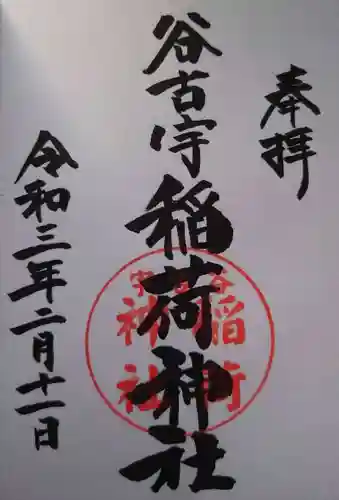 奉拝
谷古宇稲荷神社
令和三年二月十一日
谷古宇
稲荷
神社